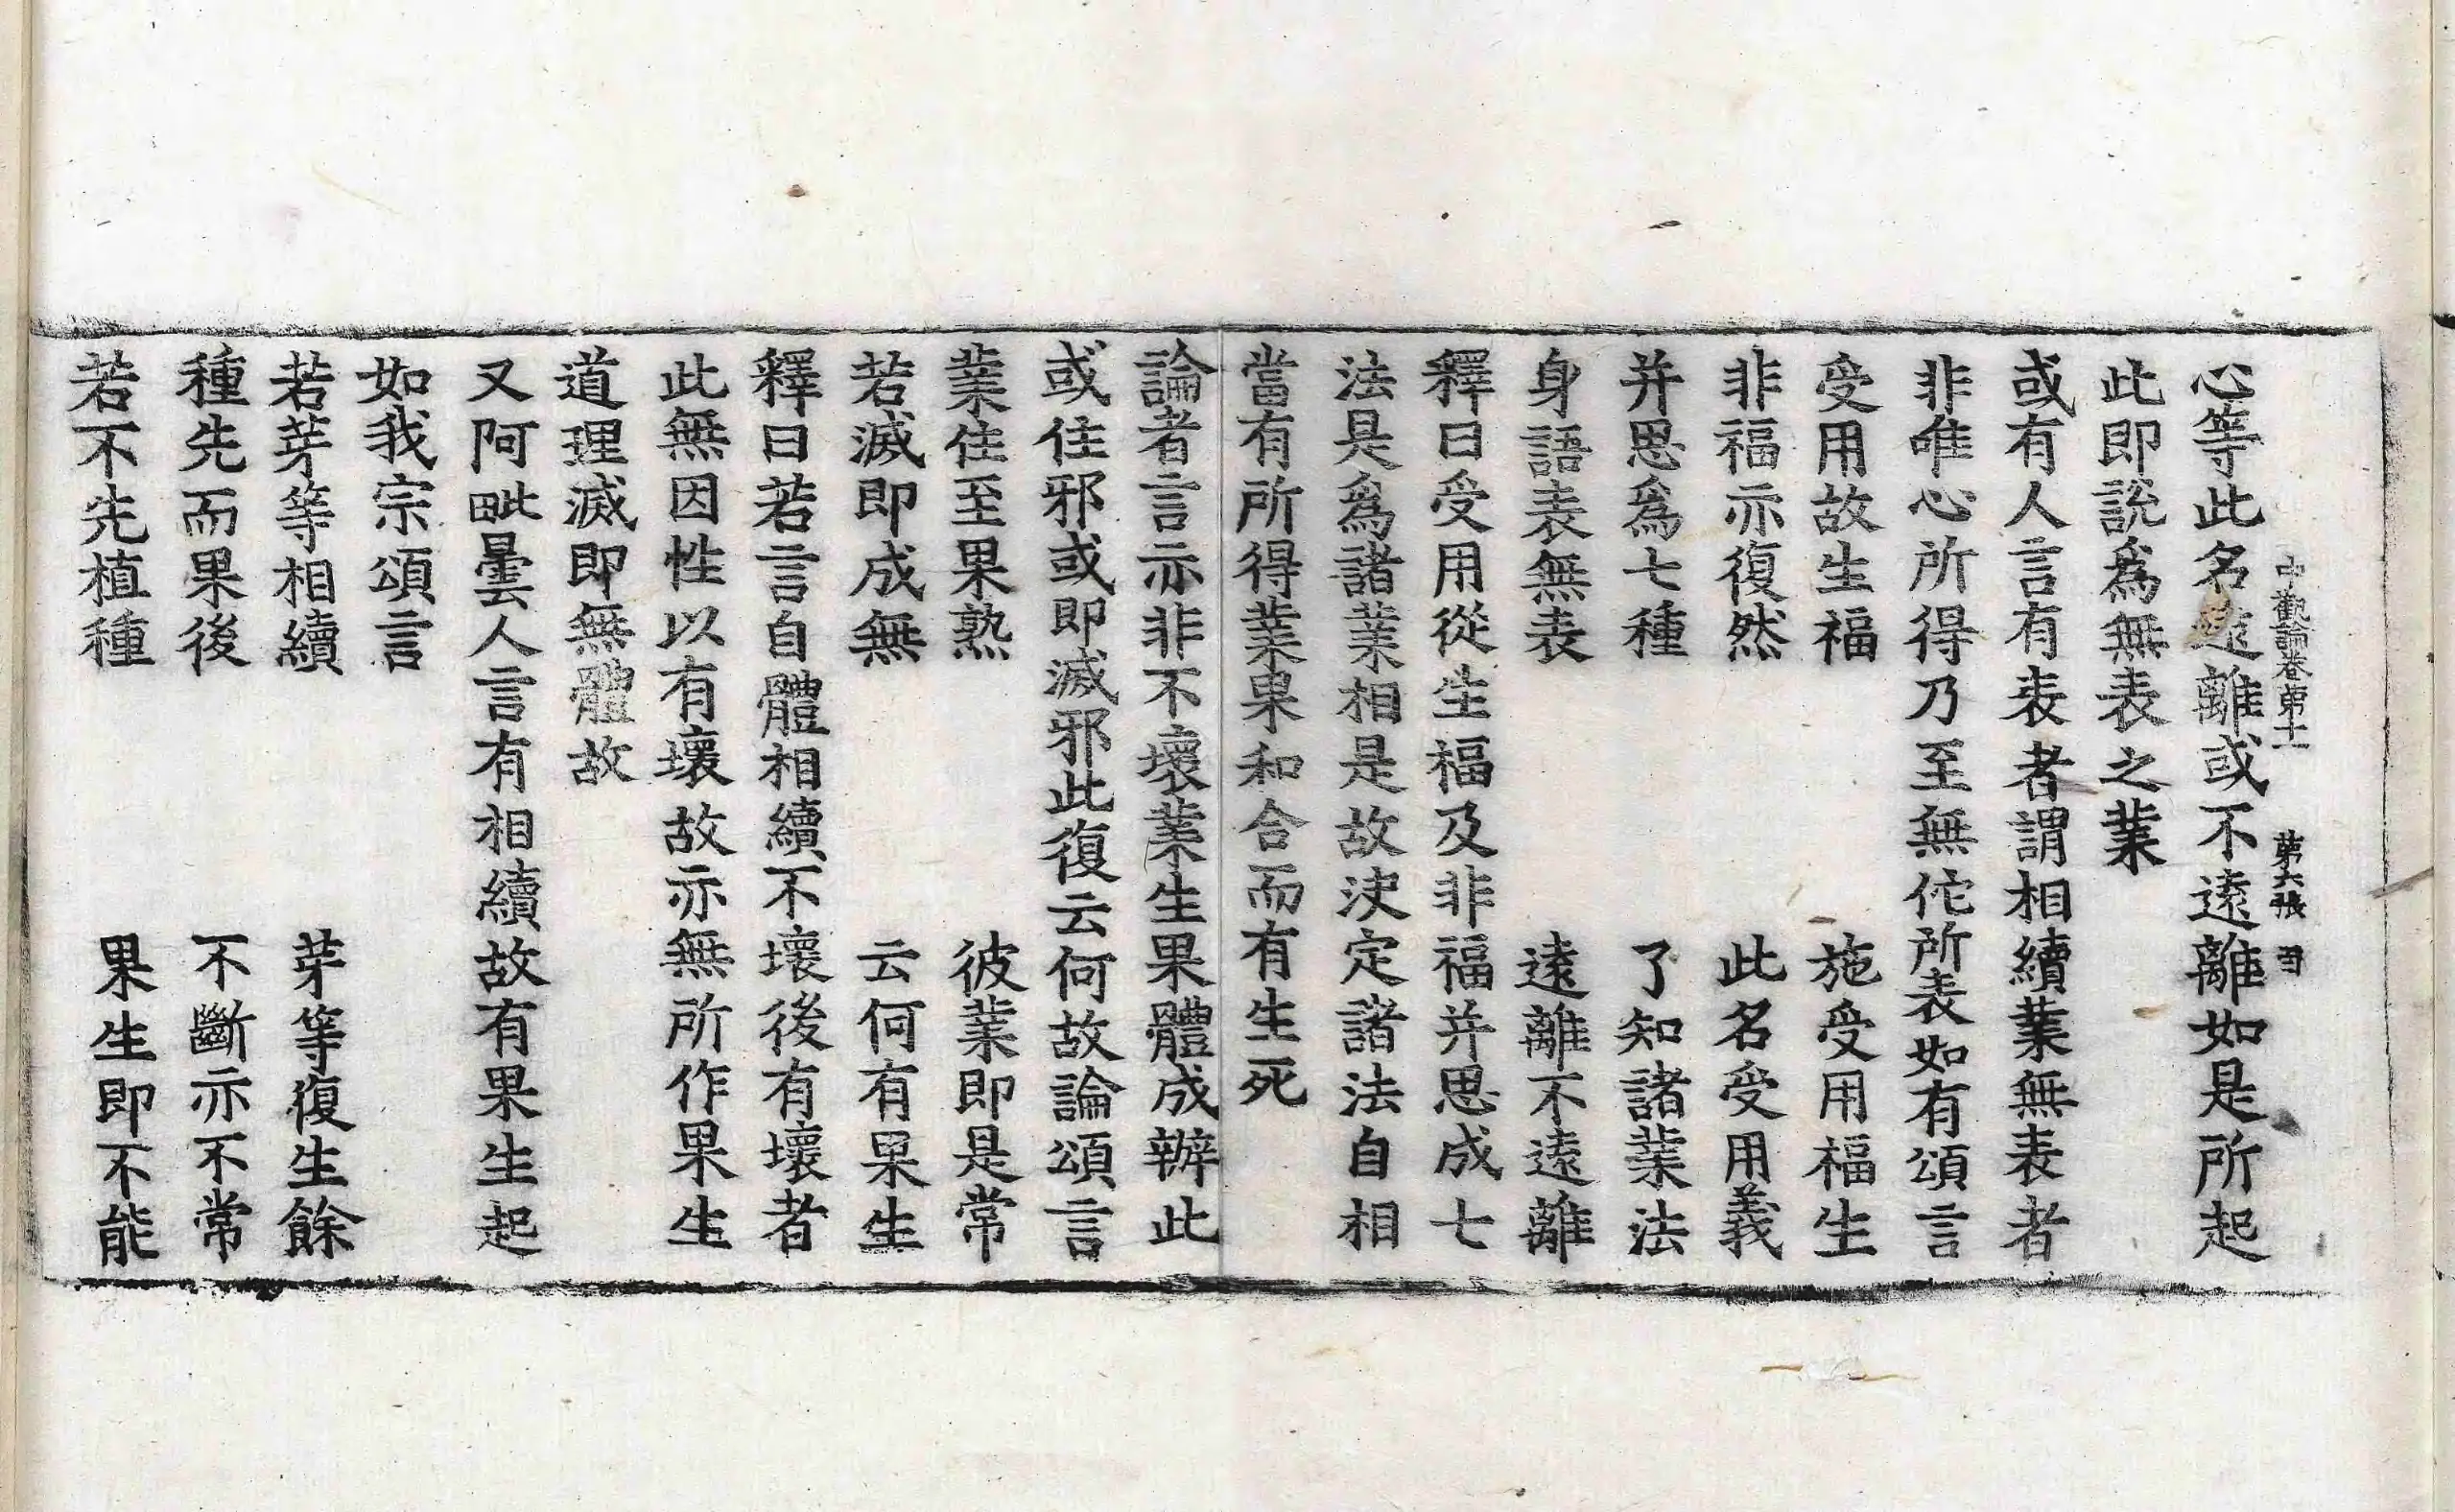 中觀論卷第十一 第六張
心等此名遠離或不遠離如是所起
此即說爲無表之業
或有人言有表者謂相續業無表者
非唯心所得乃至無佗所表如有頌言
受用故生福 施受用福生
非福亦復然 此名受用義
并思爲七種 了知諸業法
身語表無表 遠離不遠離
釋曰受用從生福及非福并思成七
法是爲諸業相是故決定諸法自相
當有所得業果和合而有生死
論者言亦非不壞業生果體成辦此
或住邪或即滅邪此復云何故論頌言
業住至果熟 彼業即是常
若滅即成無 云何有果生
釋曰若言自體相續不壞後有壞者
此無因性以有壞故亦無所作果生
道理滅即無體故
又阿毗曇人言有相續故有果生起
如我宗頌言
若芽等相續 芽等復生餘
種先而果後 不斷亦不常
若不先植種 果生即不能